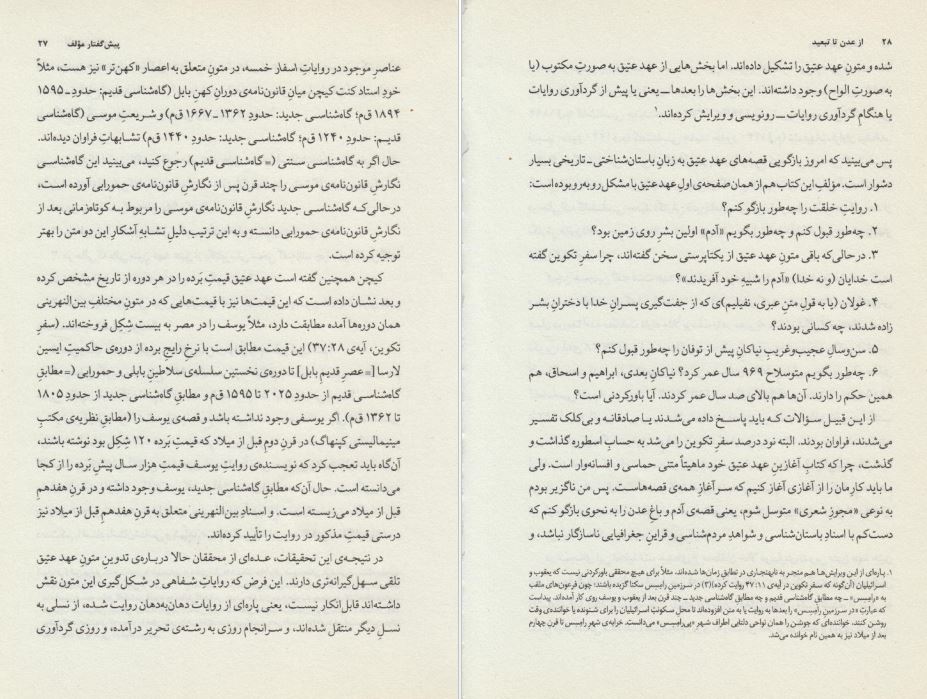 پیش‌گفتار مؤلف ۲۷
عناصرِ موجود در روایاتِ اسفار خمسه، در متونِ متعلق به اعصار «کهن‌تر» نیز هست، مثلاً
خودِ استاد کنت کیچن میانِ قانون‌نامه‌ی دورانِ کهنِ بابل (گاه‌شناسی قدیم: حدودِ ـ ۱۵۹۵
۱۸۹۴ ق‌م؛ گاه‌شناسی جدید: حدودِ ۱۳۶۲ ـ ۱۶۶۷ ق‌م) و شریعتِ موسی (گاه‌شناسی
قدیم: حدودِ ۱۲۴۰ ق‌م؛ گاه‌شناسی جدید: حدودِ ۱۴۴۰ ق‌م) تشابهاتِ فراوان دیده‌اند.
حال اگر به گاه‌شناسی سنتی (= گاه‌شناسی قدیم) رجوع کنید، می‌بینید این گاه‌شناسی
نگارشِ قانون‌نامه‌ی موسی را چند قرن پس از نگارشِ قانون‌نامه‌ی حمورابی آورده است،
درحالی‌که گاه‌شناسی جدید نگارشِ قانون‌نامه‌ی موسی را مربوط به کوتاه‌زمانی بعد از
نگارشِ قانون‌نامه‌ی حمورابی دانسته و به این ترتیب دلیلِ تشابهِ آشکارِ این دو متن را بهتر
توجیه کرده است.
کیچن همچنین گفته است عهد عتیق قیمتِ بَرده را در هر دوره از تاریخ مشخص کرده
و بعد نشان داده است که این قیمت‌ها نیز با قیمت‌هایی که در متونِ مختلفِ بین‌النهرینی
همان دوره‌ها آمده مطابقت دارد، مثلاً یوسف را در مصر به بیست شِکِل فروخته‌اند. (سفرِ
تکوین، آیه‌ی ۳۷:۲۸) این قیمت مطابق است با نرخِ رایجِ برده از دوره‌ی حاکمیتِ ایسین
لارسا [=عصرِ قدیمِ بابل] تا دوره‌ی نخستین سلسله‌ی سلاطینِ بابلی و حمورابی (= مطابقِ
گاه‌شناسی قدیم از حدودِ ۲۰۲۵ تا ۱۵۹۵ ق‌م و مطابقِ گاه‌شناسی جدید از حدودِ ۱۸۰۵
تا ۱۳۶۲ ق‌م). اگر یوسفی وجود نداشته باشد و قصه‌ی یوسف را (مطابقِ نظریه‌ی مکتبِ
مینیمالیستی کپنهاگ) در قرنِ دومِ قبل از میلاد که قیمتِ بَرده ۱۲۰ شِکِل بود نوشته باشند،
آن‌گاه باید تعجب کرد که نویسنده‌ی روایتِ یوسف قیمتِ هزار سال پیشِ بَرده را از کجا
می‌دانسته است. حال آن‌که مطابقِ گاه‌شناسی جدید، یوسف وجود داشته و در قرنِ هفدهمِ
قبل از میلاد می‌زیسته است. و اسنادِ بین‌النهرینی متعلق به قرنِ هفدهمِ قبل از میلاد نیز
درستی قیمتِ مذکور در روایت را تأیید کرده‌اند.
در نتیجه‌ی این تحقیقات، عده‌ای از محققان حالا درباره‌ی تدوینِ متونِ عهد عتیق
تلقی سهل‌گیرانه‌تری دارند. این فرض که روایاتِ شفاهی در شکل‌گیری این متون نقش
داشته‌اند قابل انکار نیست، یعنی پاره‌ای از روایات دهان‌به‌دهان روایت شده، از نسلی به
نسلِ دیگر منتقل شده‌اند، و سرانجام روزی به رشته‌ی تحریر درآمده، و روزی گردآوری
۲۸ از عدن تا تبعید
شده و متونِ عهد عتیق را تشکیل داده‌اند. اما بخش‌هایی از عهد عتیق به صورتِ مکتوب (یا
به صورتِ الواح) وجود داشته‌اند. این بخش‌ها را بعدها ــ یعنی یا پیش از گردآوری روایات
یا هنگامِ گردآوری روایات ــ رونویسی و ویرایش کرده‌اند.۱
پس می‌بینید که امروز بازگویی قصه‌های عهد عتیق به زبانِ باستان‌شناختی ـ تاریخی بسیار
دشوار است. مؤلفِ این کتاب هم از همان صفحه‌ی اولِ عهد عتیق با مشکل روبه‌رو بوده است:
۱. روایتِ خلقت را چه‌طور بازگو کنم؟
۲. چه‌طور قبول کنم و چه‌طور بگویم «آدم» اولین بشرِ روی زمین بود؟
۳. درحالی‌که باقی متونِ عهد عتیق از یکتاپرستی سخن گفته‌اند، چرا سفرِ تکوین گفته
است خدایان (و نه خدا) «آدم را شبیهِ خود آفریدند»؟
۴. غولان (یا به قولِ متنِ عبری، نفیلیم)ی که از جفت‌گیری پسرانِ خدا با دخترانِ بشر
زاده شدند، چه کسانی بودند؟
۵. سن‌وسالِ عجیب‌وغریبِ نیاکانِ پیش از توفان را چه‌طور قبول کنم؟
۶. چه‌طور بگویم متوسلاح ۹۶۹ سال عمر کرد؟ نیاکانِ بعدی، ابراهیم و اسحاق، هم
همین حکم را دارند. آن‌ها هم بالای صد سال عمر کردند. آیا باورکردنی است؟
از این قبیل سؤالات که باید پاسخ داده می‌شدند یا صادقانه و بی‌کلک تفسیر
می‌شدند، فراوان بودند. البته نود درصد سفرِ تکوین را می‌شد به حسابِ اسطوره گذاشت و
گذشت، چرا که کتابِ آغازینِ عهد عتیق خود ماهیتاً متنی حماسی و افسانه‌وار است. ولی
ما باید کارِمان را از آغازی آغاز کنیم که سرآغازِ همه‌ی قصه‌هاست. پس من ناگزیر بودم
به نوعی «مجوزِ شعری» متوسل شوم، یعنی قصه‌ی آدم و باغِ عدن را به نحوی بازگو کنم که
دست‌کم با اسنادِ باستان‌شناسی و شواهدِ مردم‌شناسی و قراینِ جغرافیایی ناسازگار نباشد، و
۱. پاره‌ای از این ویرایش‌ها هم منجر به نابهنجاری در تطابقِ زمان‌ها شده‌اند. مثلاً برای هیچ محققی باورکردنی نیست که یعقوب و
اسرائیلیان (آن‌گونه که سفرِ تکوین در آیه‌ی ۴۷:۱۱ روایت کرده)(۳) در سرزمینِ رامسِس سکنا گزیده باشند؛ چون فرعون‌های ملقب
به «رامسِس» ــ چه مطابقِ گاه‌شناسی قدیم و چه مطابقِ گاه‌شناسی جدید ــ چند قرن بعد از یعقوب و یوسف روی کار آمده‌اند. پیداست
که عبارتِ «در سرزمینِ رامسِس» را بعدها به روایت یا به متن افزوده‌اند تا محلِ سکونتِ اسرائیلیان را برای شنونده یا خواننده‌ی وقت
روشن کنند. خواننده‌ای که جوشن را همان نواحی دلتایی اطرافِ شهرِ «پی‌رامسِس» می‌دانست. خرابه‌ی شهرِ رامسِس تا قرنِ چهارمِ
بعد از میلاد نیز به همین نام خوانده می‌شد.